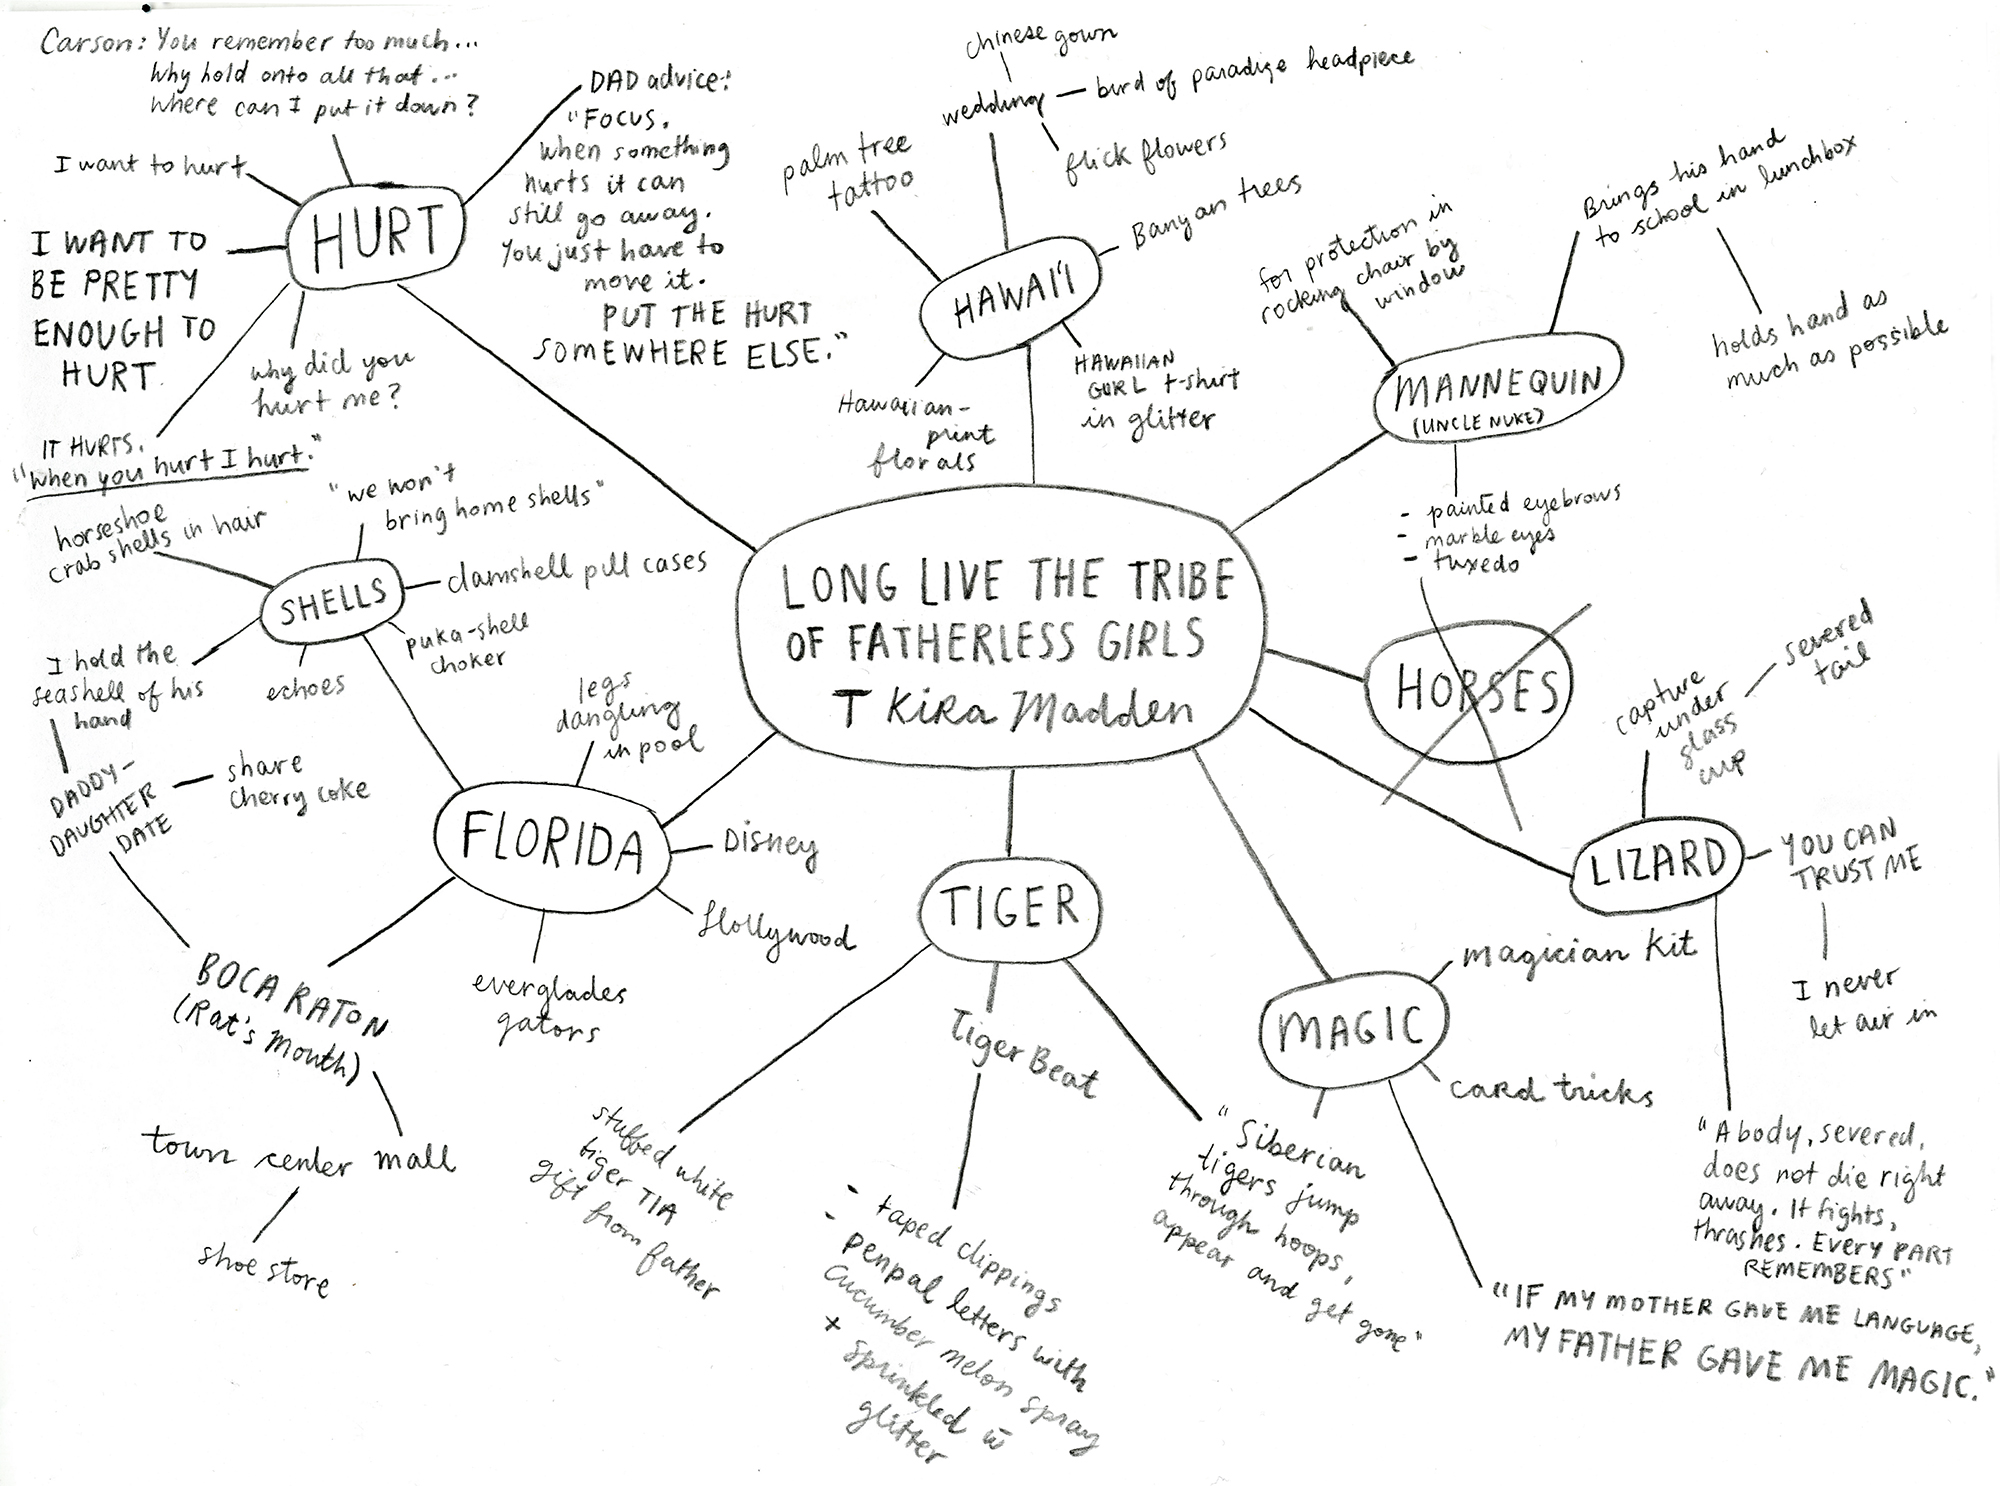 Carson: You remember too much...
Why hold onto all that...
Where can I put it down?
I want to hurt
I WANT TO
BE PRETTY
ENOUGH TO
HURT
HURT
why did you
hurt me?
IT HURTS.
"when you hurt I hurt."
DAD advice:
"FOCUS.
when something
hurts it can
still go away.
You just have to
move it.
PUT THE HURT
SOMEWHERE ELSE."
chinese gown
wedding — bird of paradise headpiece
flick flowers
palm tree
tattoo
Banyan trees
HAWAI'I
Hawaiian-
print
florals
HAWAIIAN
GURL t-shirt
in glitter
for protection in
rocking chair by
window
Brings his hand
to school in lunchbox
holds hand as
much as possible
MANNEQUIN
(UNCLE NUKE)
- painted eyebrows
- marble eyes
- tuxedo
horseshoe
crab shells in hair
"we won't
bring home shells"
clamshell pill cases
SHELLS
puka-shell
choker
echoes
I hold the
seashell of his
hand
DADDY-
DAUGHTER
DATE
share
cherry coke
LONG LIVE THE TRIBE
OF FATHERLESS GIRLS
T Kira Madden
HORSES
capture
under
glass
cup
severed
tail
LIZARD
YOU CAN
TRUST ME
I never
let air in
"A body, severed,
does not die right
away. It fights,
thrashes. Every PART
REMEMBERS"
legs
dangling
in pool
FLORIDA
Disney
Hollywood
everglades
gators
BOCA RATON
(Rat's Mouth)
town center mall
shoe store
TIGER
stuffed white
tiger TIA
gift from father
Tiger Beat
- taped clippings
- penpal letters with
cucumber melon spray
+ sprinkled w
glitter
"Siberian
tigers jump
through hoops,
appear and get gone"
MAGIC
magician kit
card tricks
"IF MY MOTHER GAVE ME LANGUAGE,
MY FATHER GAVE ME MAGIC."